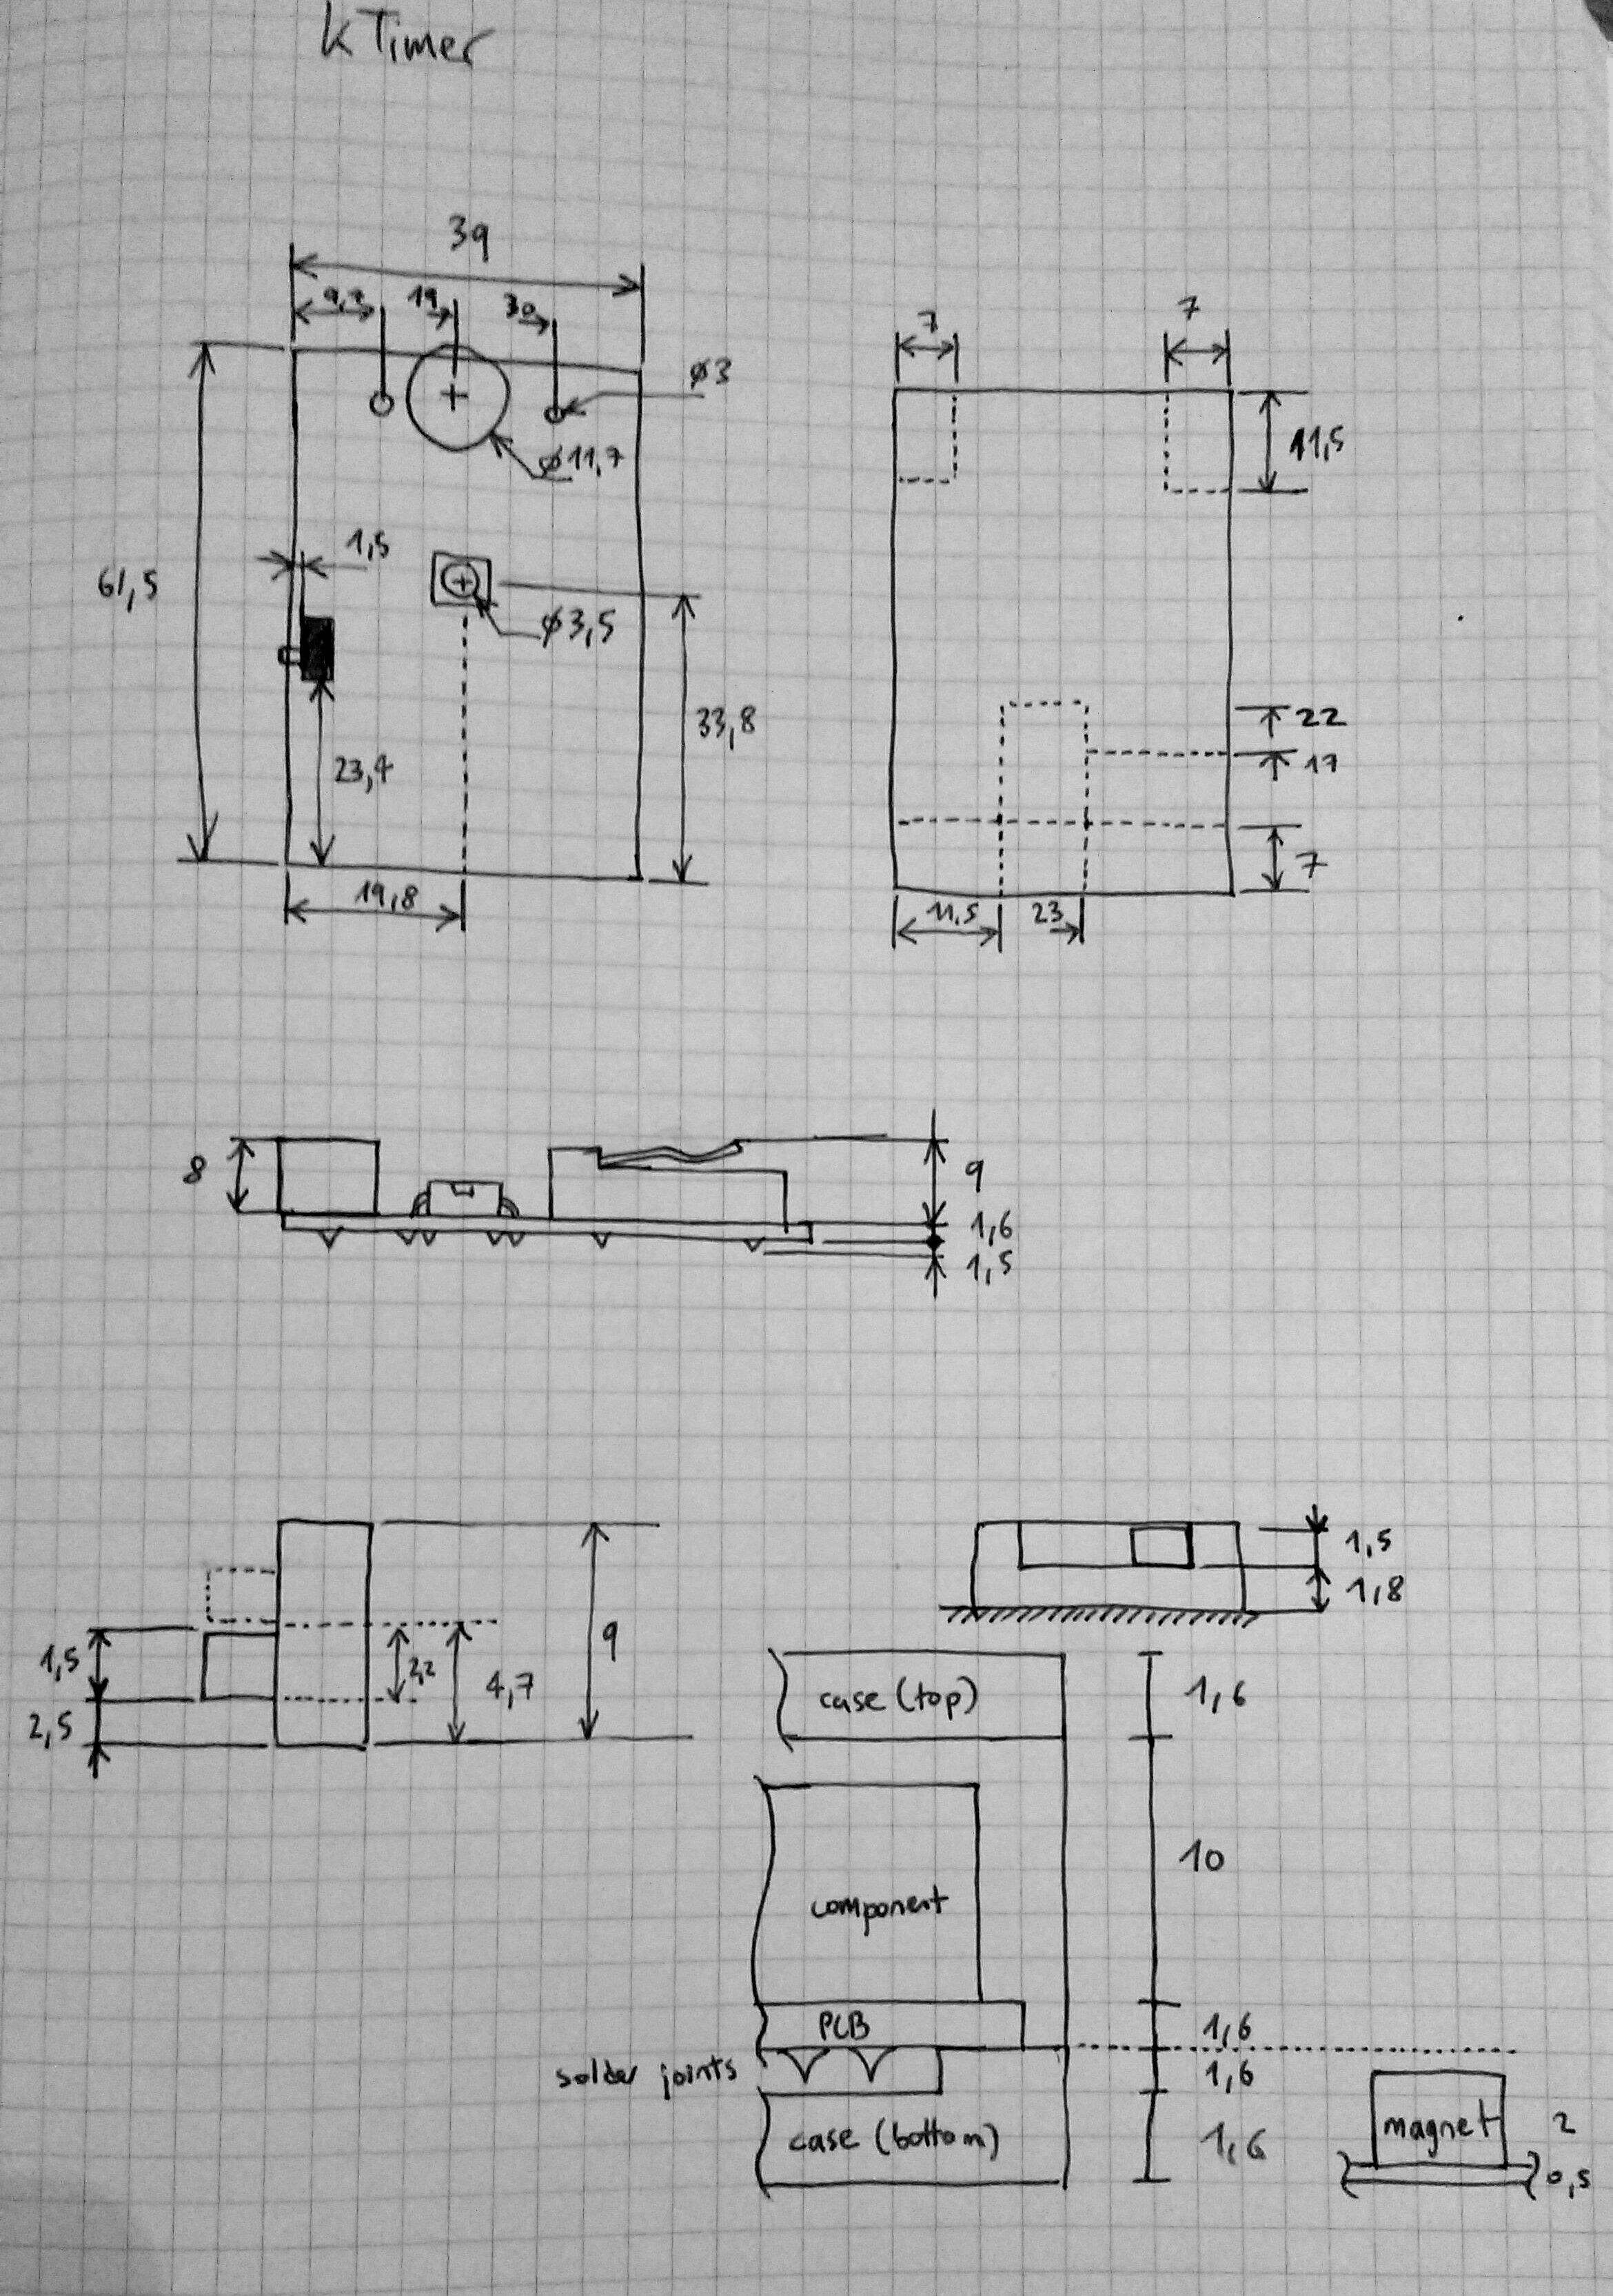 kTimer
39
19
30
ø3
ø11,7
61,5
1,5
ø3,5
33,8
23,4
19,8
7
7
11,5
22
17
7
11,5
23
8
9
1,6
1,5
1,5
1,8
9
1,5
2,2
4,7
2,5
case (top)
1,6
component
10
PCB
1,6
solder joints
1,6
case (bottom)
1,6
magnet
2
0,5